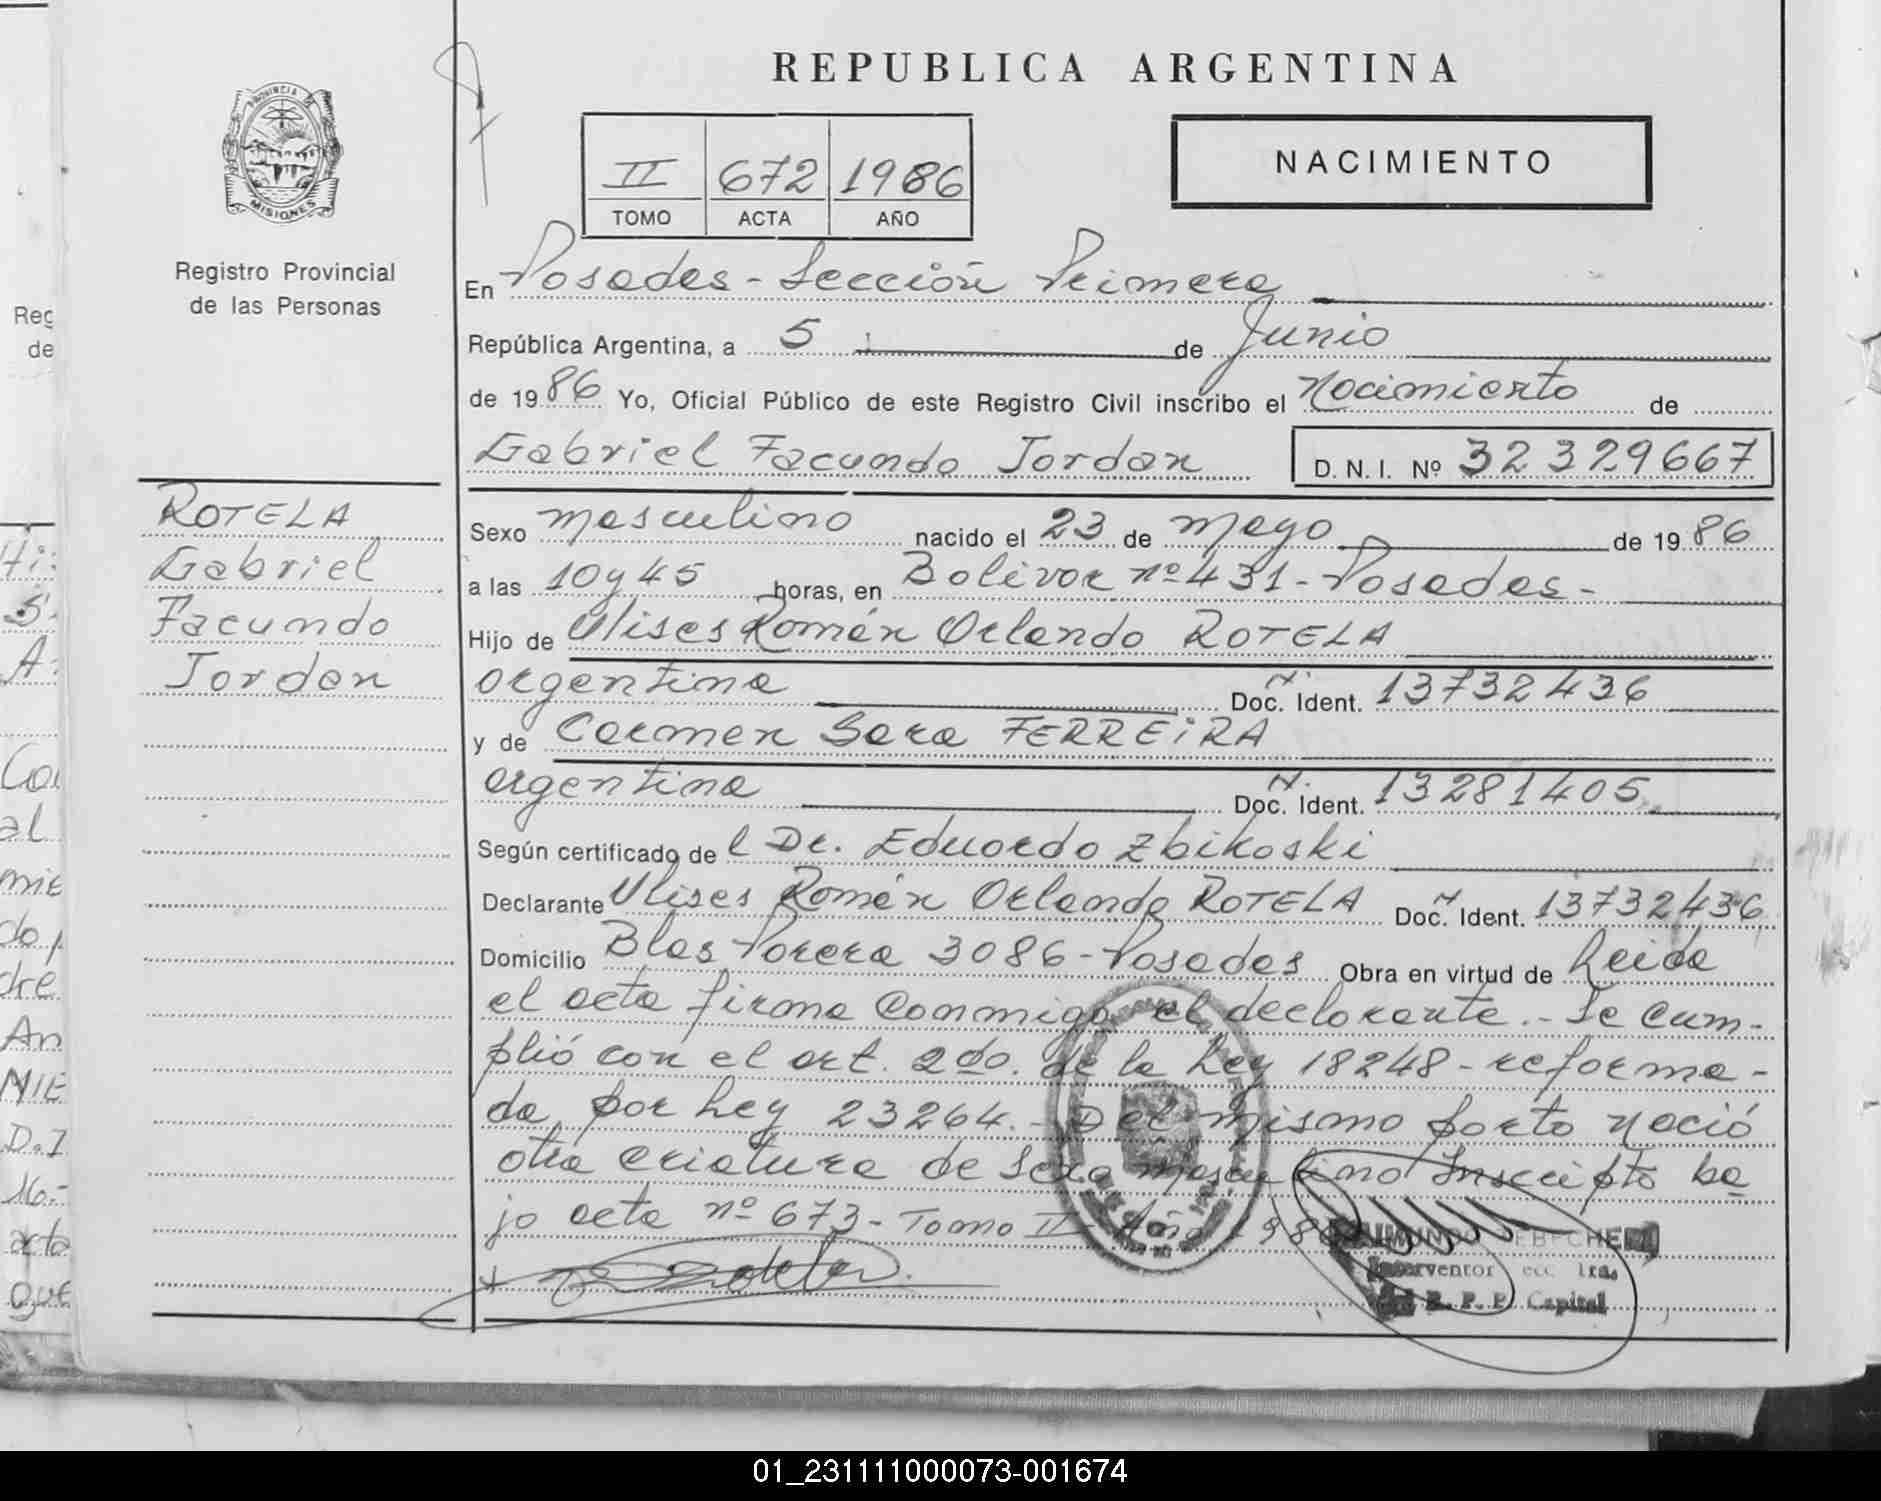 REPUBLICA ARGENTINA
PROVINCIA DE
MISIONES
Registro Provincial
de las Personas
II 672 1986
TOMO ACTA AÑO
NACIMIENTO
En Posadas - Sección Primera
República Argentina, a 5 de Junio
de 1986 Yo, Oficial Público de este Registro Civil inscribo el Nacimiento de
Gabriel Facundo Jordan D. N. I. Nº 32329667
ROTELA
Gabriel
Facundo
Jordan
Sexo masculino nacido el 23 de mayo de 1986
a las 10 y 45 horas, en Bolivar nº 431 - Posadas -
Hijo de Ulises Román Orlando ROTELA
argentina Doc. Ident. 13732436
y de Carmen Sara FERREIRA
argentina Doc. Ident. 13281405
Según certificado de l Dr. Eduardo Zbikoski
Declarante Ulises Román Orlando ROTELA Doc. Ident. 13732436
Domicilio Blas Parera 3086 - Posadas Obra en virtud de Leida
el acta firma conmigo el declarante. - Se cum-
plió con el art. 2do. de la Ley 18248 - reforma-
da por Ley 23264. - Del mismo parto nació
otra criatura de sexo masculino Inscripto ba
jo acta nº 673 - Tomo II - Año 1986
Interventor Secc 1ra.
R. P. P. Capital
01_231111000073-001674